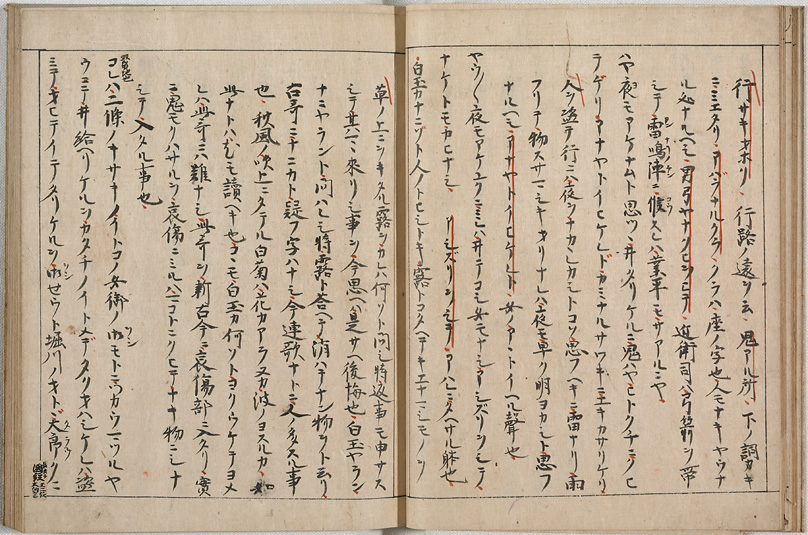 行サキオホリ 行路ノ遠ヲ云 鬼アル所 下ノ調カキ
ニミエタリ アバラナルクラ クラハ座ノ字也 人モナキヤウナ
ル処ナルヘシ 男弓ヤナクヒヲヒテ 近衛司ハ弓箭ヲ帯
シテ雷鳴陣ニ候スレハ業平モサアルニヤ
ハヤ夜モアケナムト思ツヽ井タリケルニ鬼ハヤヒトクチニクヒ
テケリアナヤトイヒケレドカミナルサワキニエキカサリケリ
人ヲ盗テ行ニハ夜ヲナカヽレカシトコソ思フヘキニ雷ナリ雨
フリテ物スサマシキオリナレハ夜モ早ク明ヨカシト思フ
ナルヘシ アナヤトイヒケレト 女ノアヽトイヘル聲也
ヤウ〱夜モアケユクニミレハ井テコシ女モナシアシズリヲシテ
ナケトモカヒナシ アシズリヲシテ アハレニタヘサル躰也
白玉カナニゾト人ノトヒシトキ露トコタヘテキエナマシモノヲ
草ノ上ニヲキタル露ヲカレハ何ソト問シ時返事モ申サス
シテ其マヽ來リシ事ヲ今思ヘハ是サヘ後悔也 白玉ヤラン
ナニヤラント問ハレシ時露ト答ヘテ消ハテナン物ヲト云リ
古哥ニナニカト疑フ字ハナシ今連歌ナトニ人ノ多クスル事
也 秋風ノ吹上ニタテル白菊ハ花カアラヌカ波ノヨスルカ 如
此ナトハ讀ヘキ也 コヽモ白玉カ何ソトヨリウケテヨメ
レハ此哥ニハ難ナシ 此哥ヲ新古今ニ哀傷部ニ入タリ 實
ニ鬼モクハサルヲ哀傷ニミルハマコトニクヒテナキ物ニシナ
シテ入タル事也
コレハ二條ノキサキノイトコノ女御ノ御モトニツカウマツルヤ
ウニテ井給ヘリケルヲカタチノイトメデタクオハシケレハ盗
ミテオヒテイテタリケルヲ御セウト堀川ノオトヾ太郎クニ